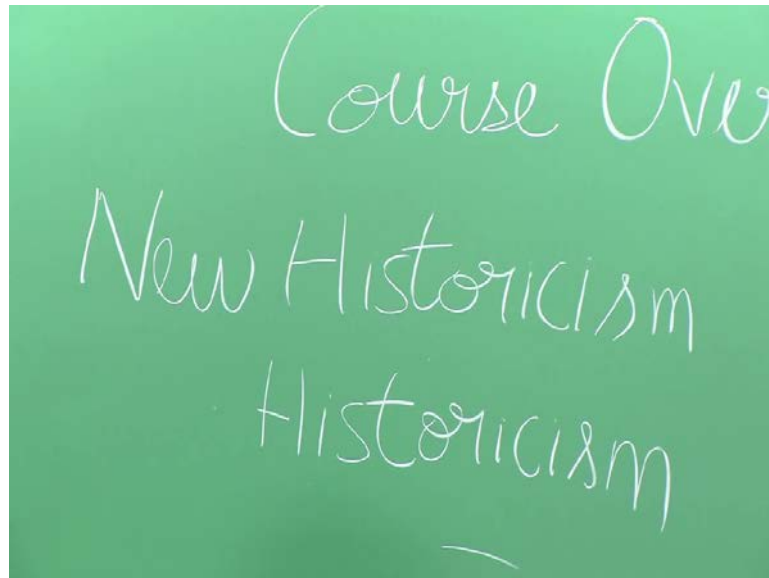 Course Ove
New Historicism
Historicism